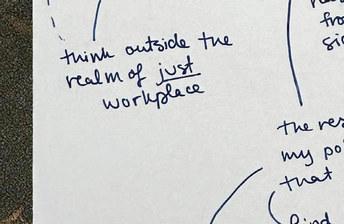 think outside the
realm of just
workplace
fro
the res
my po
that